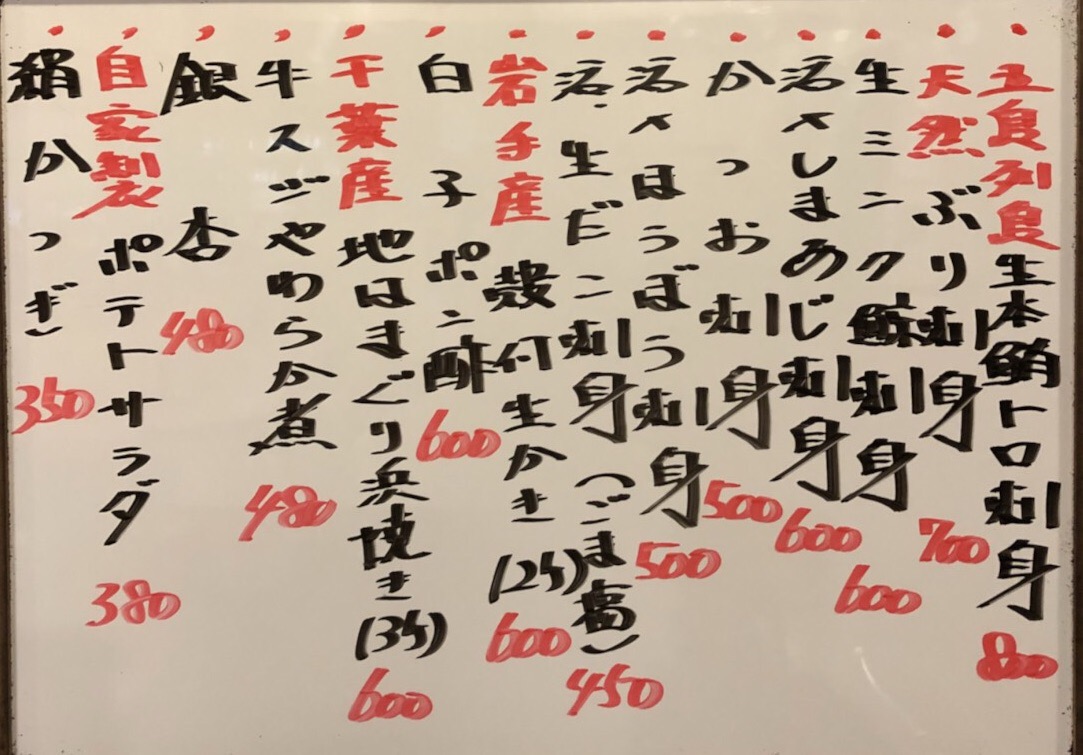 五島列島生本鮪トロ刺身 800
天然ぶり刺身 700
生ミンク鯨刺身 600
活〆しまあじ刺身 600
かつお刺身 500
活〆ほうぼう刺身 500
活.生だこ刺身(ごま塩) 450
岩手産殻付生かき(2ケ) 600
白子ポン酢 600
千葉産地はまぐり浜焼き(3ケ) 600
牛スジやわらか煮 480
銀杏 480
自家製ポテトサラダ 380
絹かつぎ 350